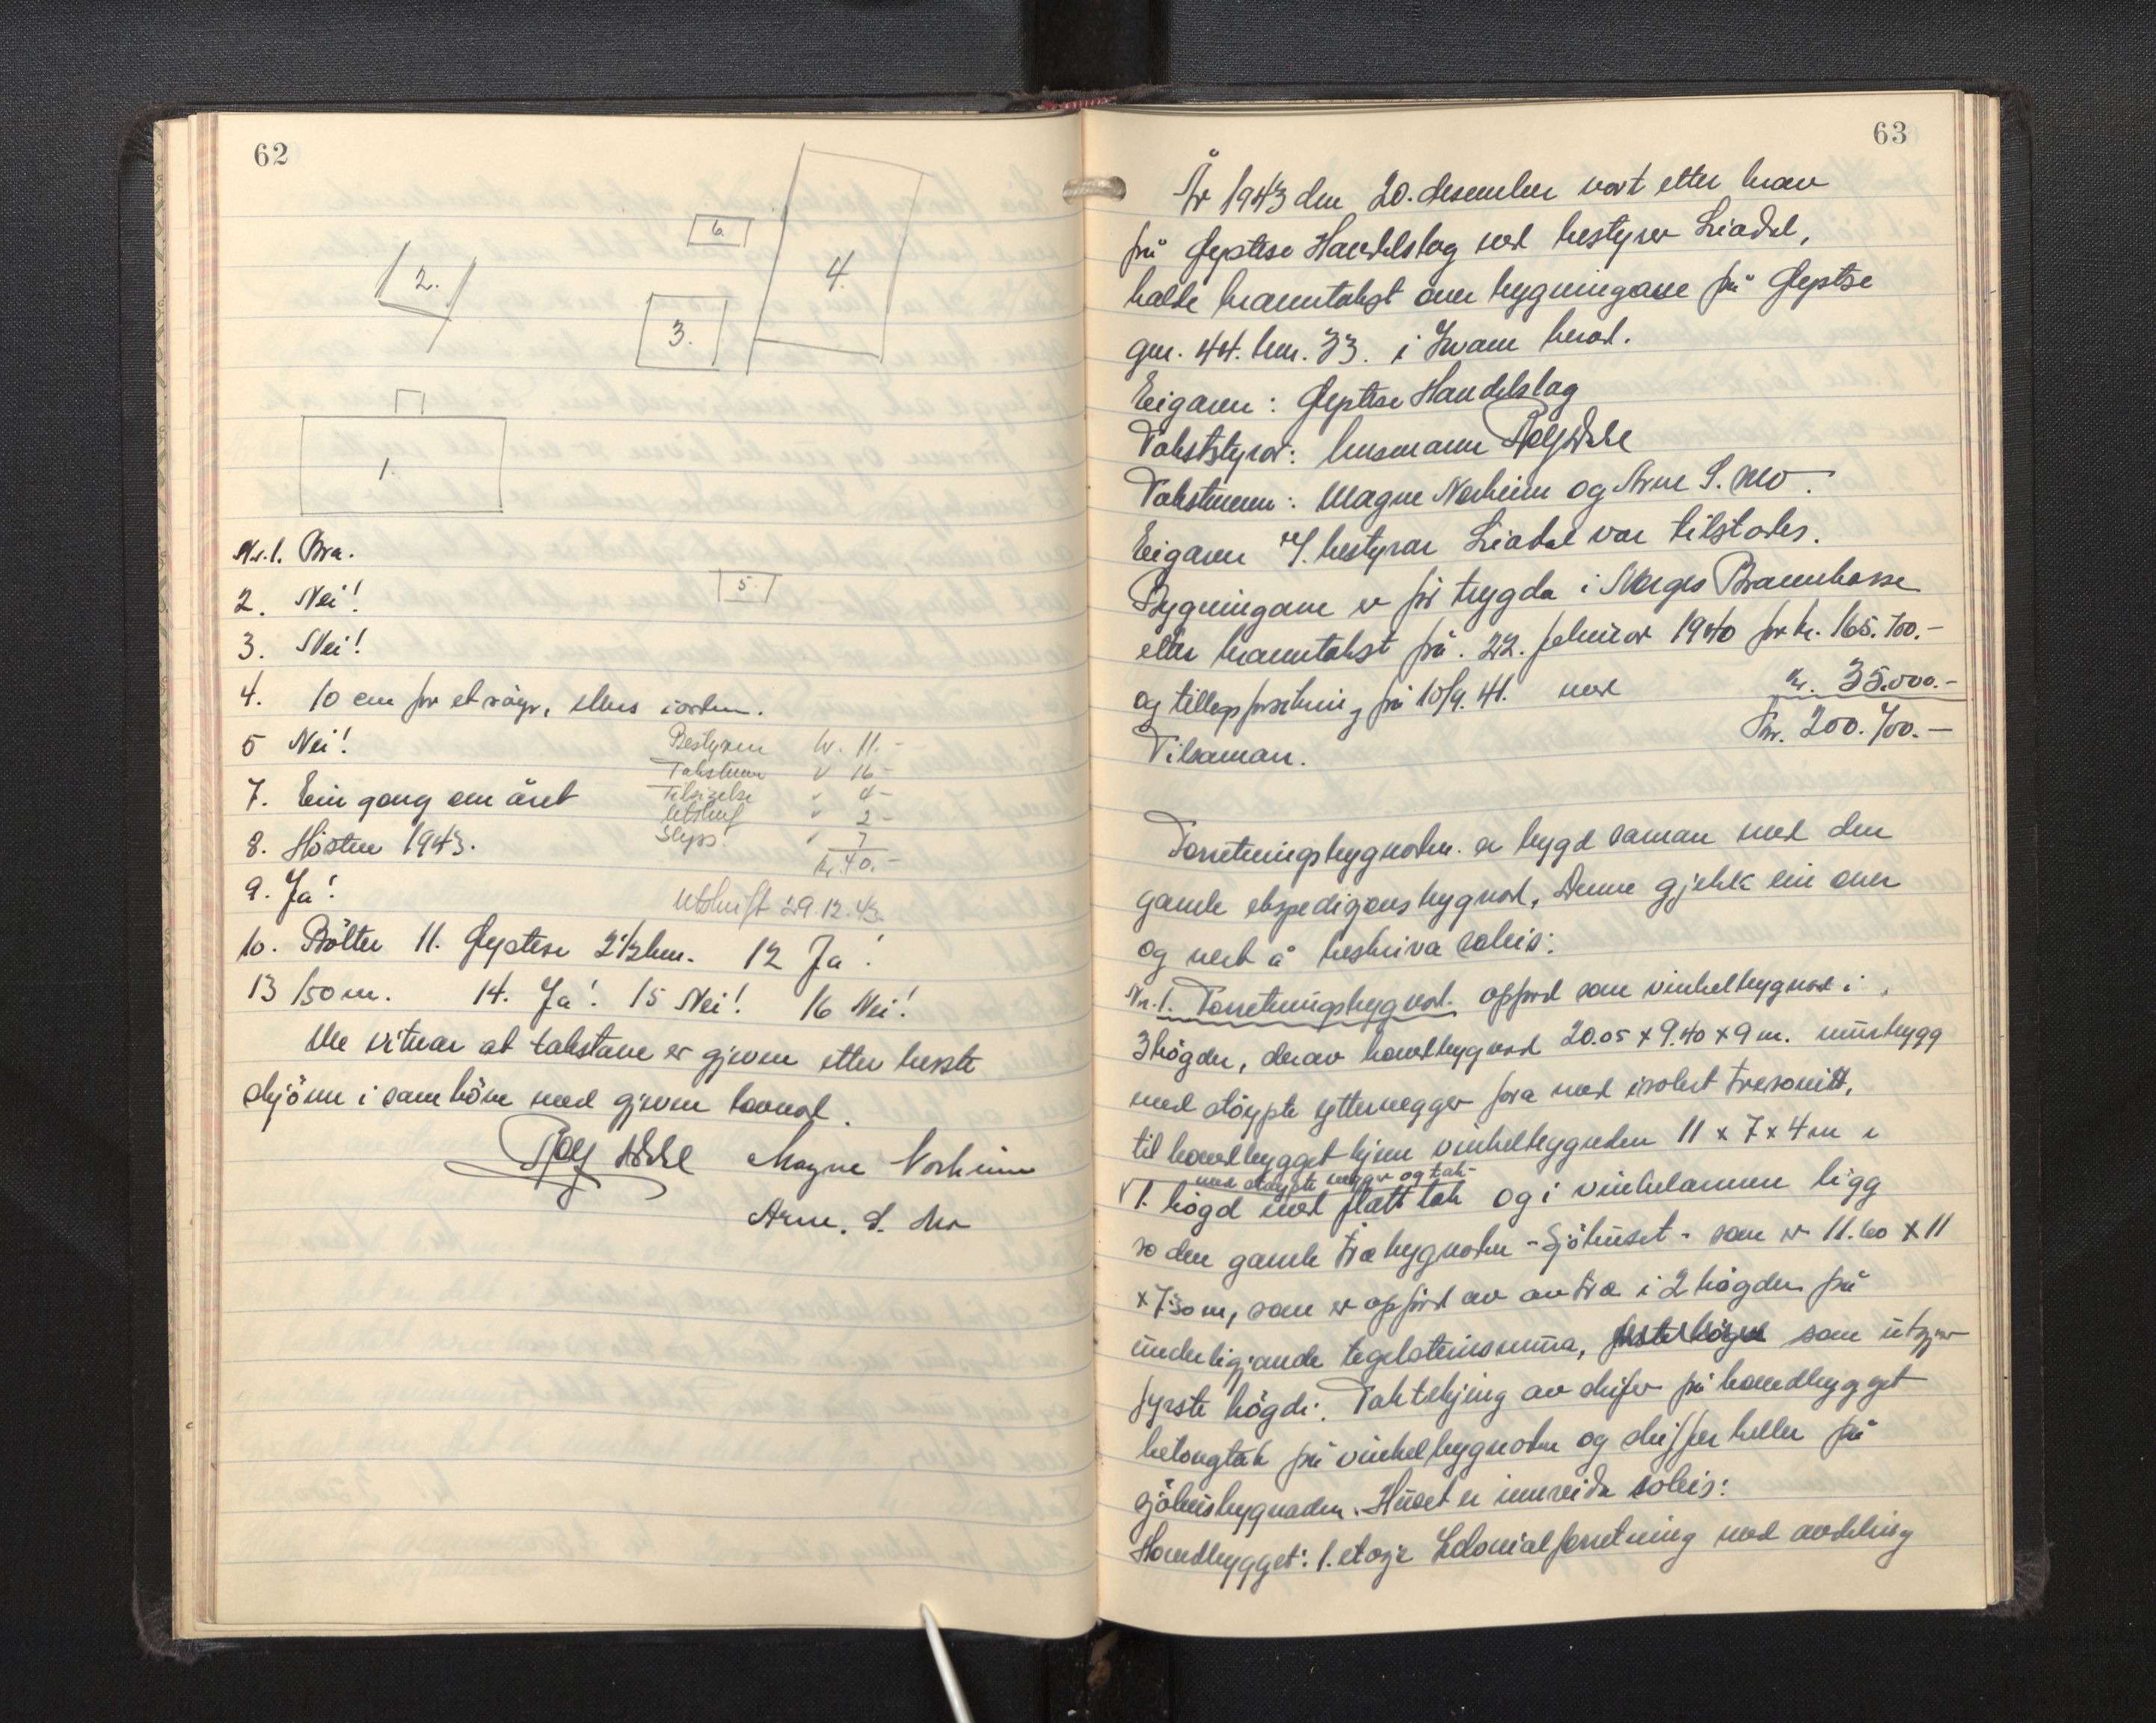 62
6.
2.
4.
3.
1.
Nr. 1. Bra.
5.
2. Nei!
3. Nei!
4. 10 cm for et röyr, elles i orden.
5 Nei!
Bestyrer kr. 11.-
Takstmenn " 16-
7. Ein gong om året
Tilsigelse " 4-
Utskrift " 2-
8. Hösten 1943.
Skyss " 7
kr. 40.-
9. Ja!
Utskrift 29.12.43.
10. Bölter 11. Öystese 2 1/2 km. 12 Ja!
13 150 m. 14. Ja! 15 Nei! 16 Nei!
Me vitnar at takstane er gjevne etter beste
skjönn i samhöve med gjeven lovnad.
Magne Norheim
Arne. S. Mo
63
År 1943 den 20. desember vart etter krav
frå Öystese Handelslag ved bestyrer Liadal,
halde branntakst over bygningane på Öystese
gnr. 44. bnr. 33. i Kvam herad.
Eigaren: Öystese Handelslag
Takststyrar: lensmann
Takstmenn: Magne Norheim og Arne S. Mo.
Eigaren v/ bestyrar Liadal var tilstades.
Bygningane er för trygda i Norges Brannkasse
etter branntakst frå. 22. februar 1940 for kr. 165.700.-
og tilleggsforsikring frå 10/9. 41. med kr. 35.000.-
Tilsaman. kr. 200.700.-
Forretningsbygnaden er bygd saman med den
gamle ekspedisjonsbygnad. Denne gjekk ein over
og vert å beskriva soleis:
Nr. 1. Forretningsbygnad. oppförd som vinkelbygnad i
3 högder, derav hovedbygnad 20.05 x 9.40 x 9 m. murbygg
med stöypte yttervegger fora med isolert tresonitt,
til hovedbygget kjem vinkelbygnaden 11 x 7 x 4 m i
med stöypte vegger og tak-
1. högd med flatt tak og i vinkelarmen ligg
so den gamle træbygnaden - Sjöhuset - som er 11.60 x 11
x 7.30 m, som er oppförd av av træ i 2 högder på
underligjande tegelsteinsmura, som utgjer
fyrste högdi. Taktekjing av skifer på hovedbygget
betongtak på vinkelbygnaden og skifferheller på
sjöhusbygnaden. Huset er innreida soleis:
Hovedbygget: 1. etasje Kolonialforretning med avdeling